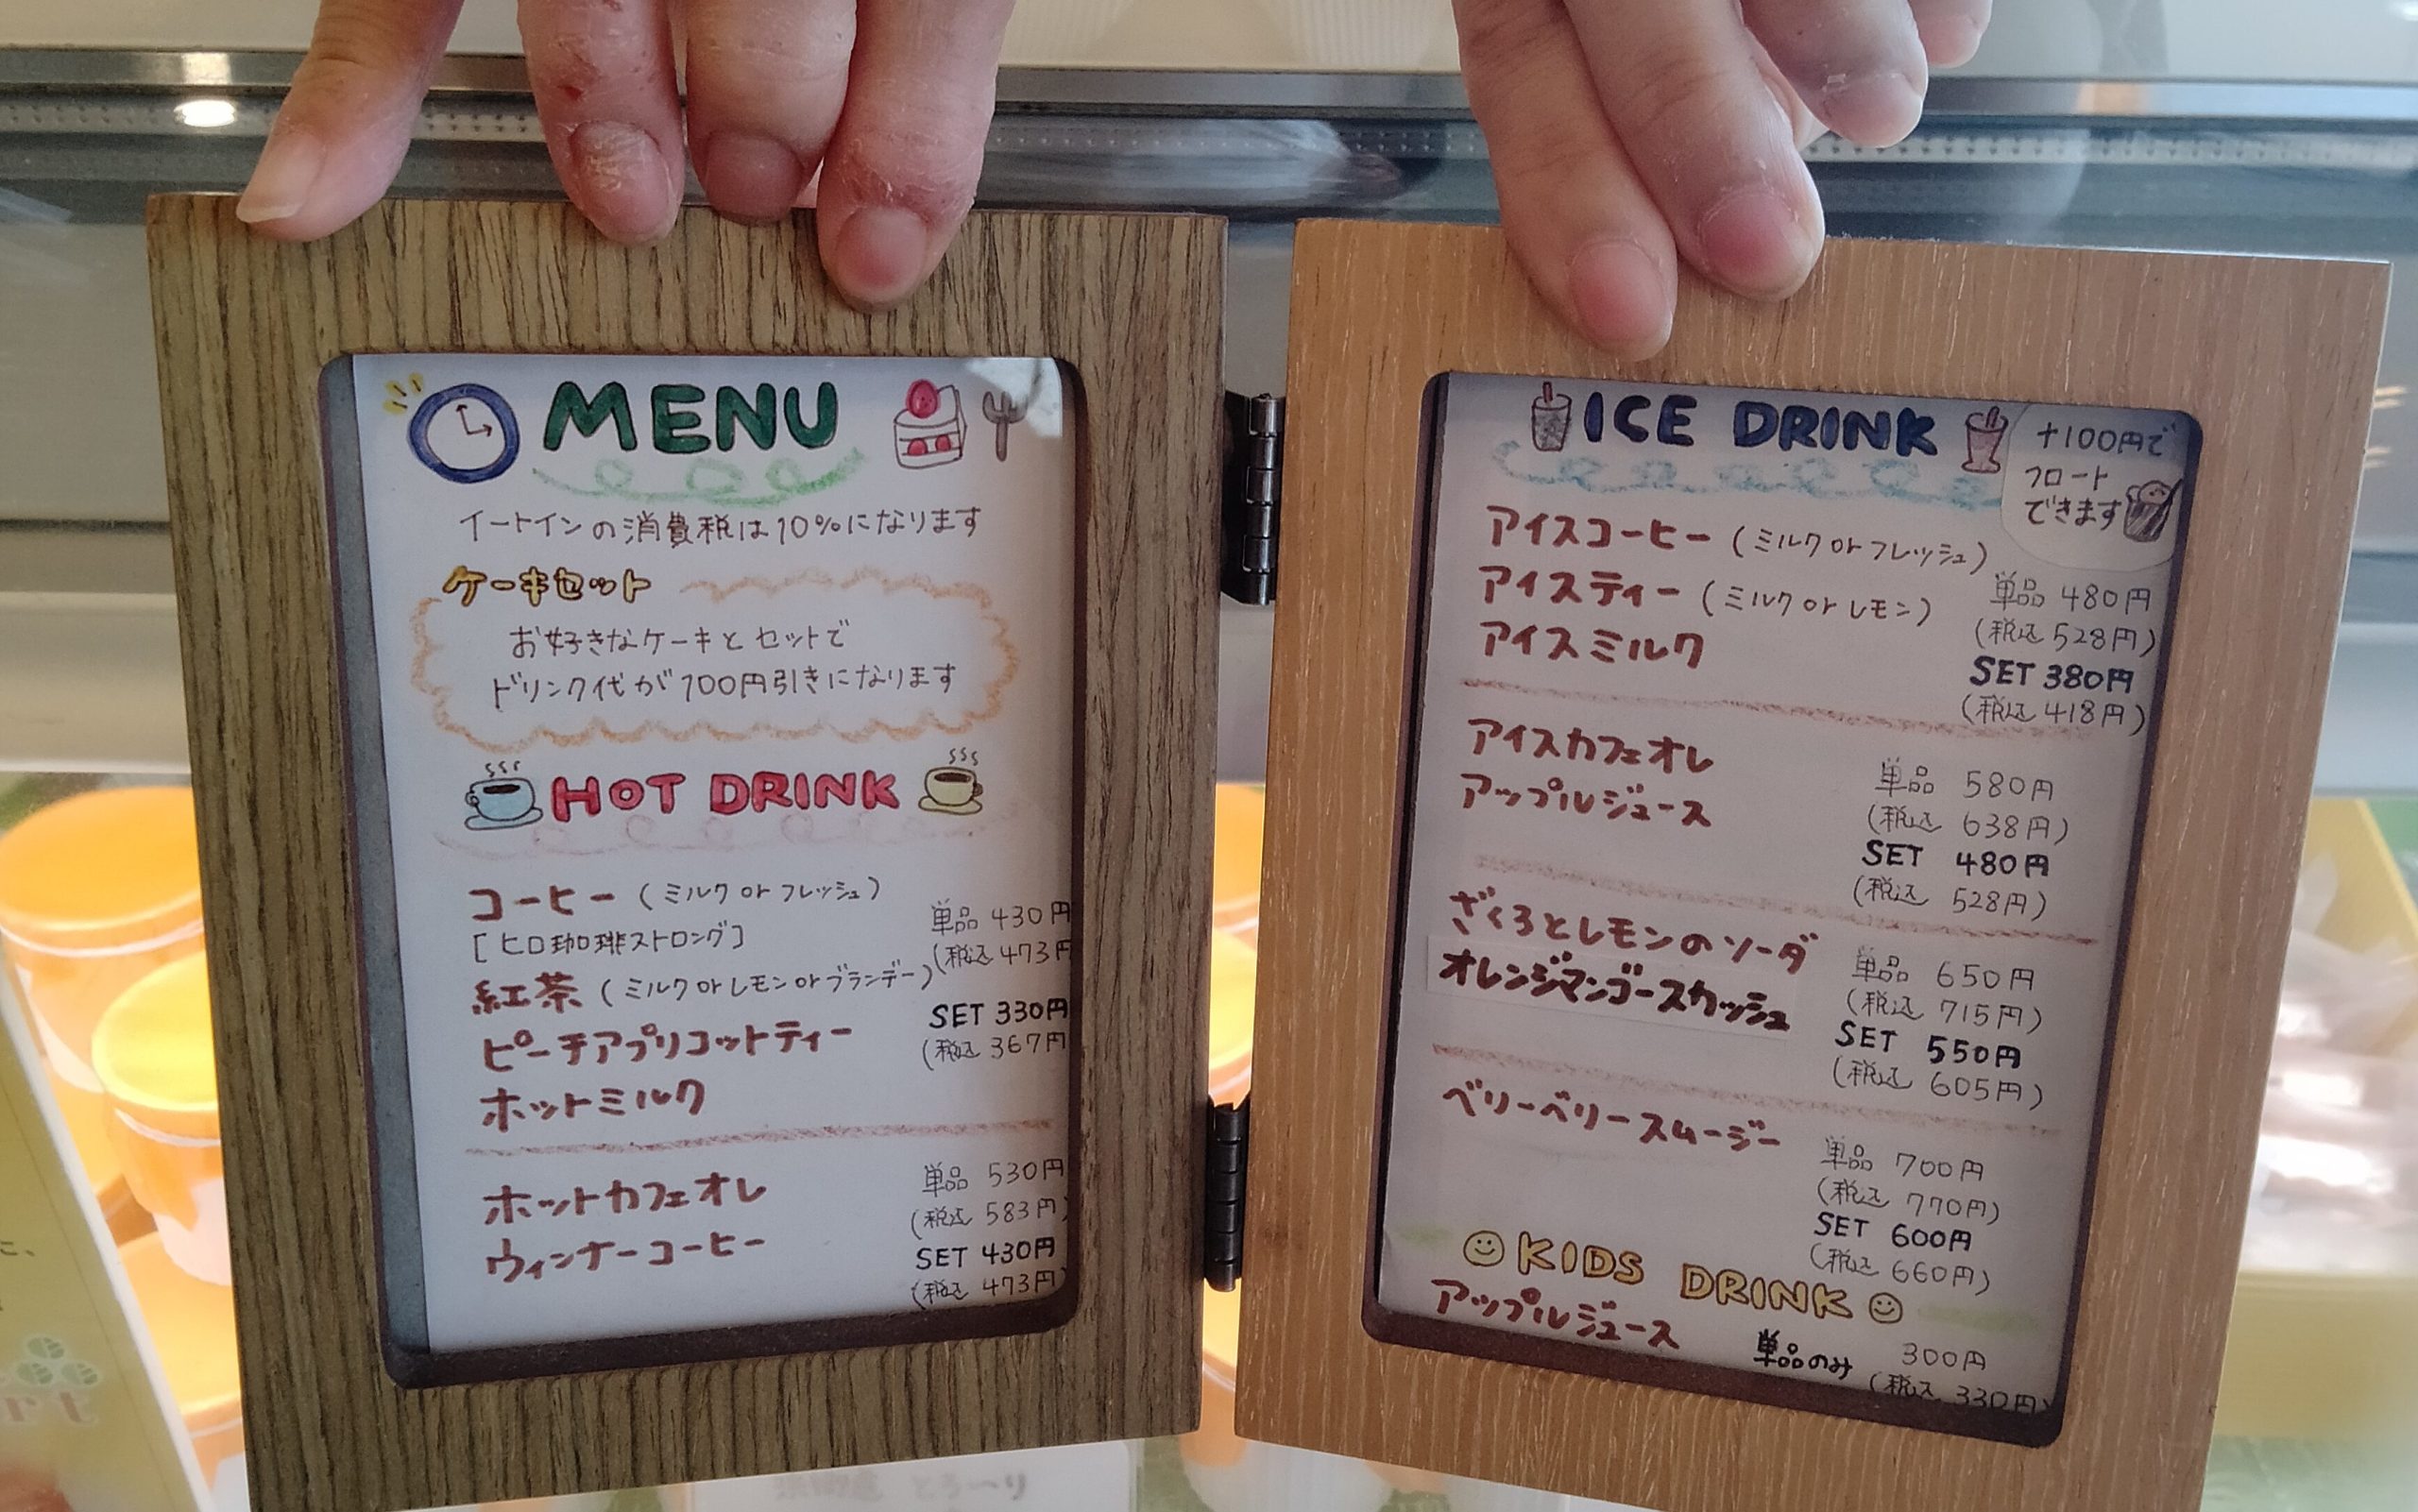 MENU
イートインの消費税は10%になります
ケーキセット
お好きなケーキとセットで
ドリンク代が100円引きになります
HOT DRINK
コーヒー(ミルク or フレッシュ)
[ヒロ珈琲ストロング]
紅茶(ミルク or レモン or ブランデー)
ピーチアプリコットティー
ホットミルク
単品 430円
(税込 473円
SET 330円
(税込 367円
ホットカフェオレ
ウィンナーコーヒー
単品 530円
(税込 583円)
SET 430円
(税込 473円)
ICE DRINK
+100円で
フロート
できます
アイスコーヒー(ミルク or フレッシュ)
アイスティー(ミルク or レモン)
アイスミルク
単品 480円
(税込 528円)
SET 380円
(税込 418円)
アイスカフェオレ
アップルジュース
単品 580円
(税込 638円)
SET 480円
(税込 528円)
ざくろとレモンのソーダ
オレンジマンゴースカッシュ
単品 650円
(税込 715円)
SET 550円
(税込 605円)
ベリーベリースムージー
単品 700円
(税込 770円)
SET 600円
(税込 660円)
KIDS DRINK
アップルジュース
単品のみ 300円
(税込 330円)